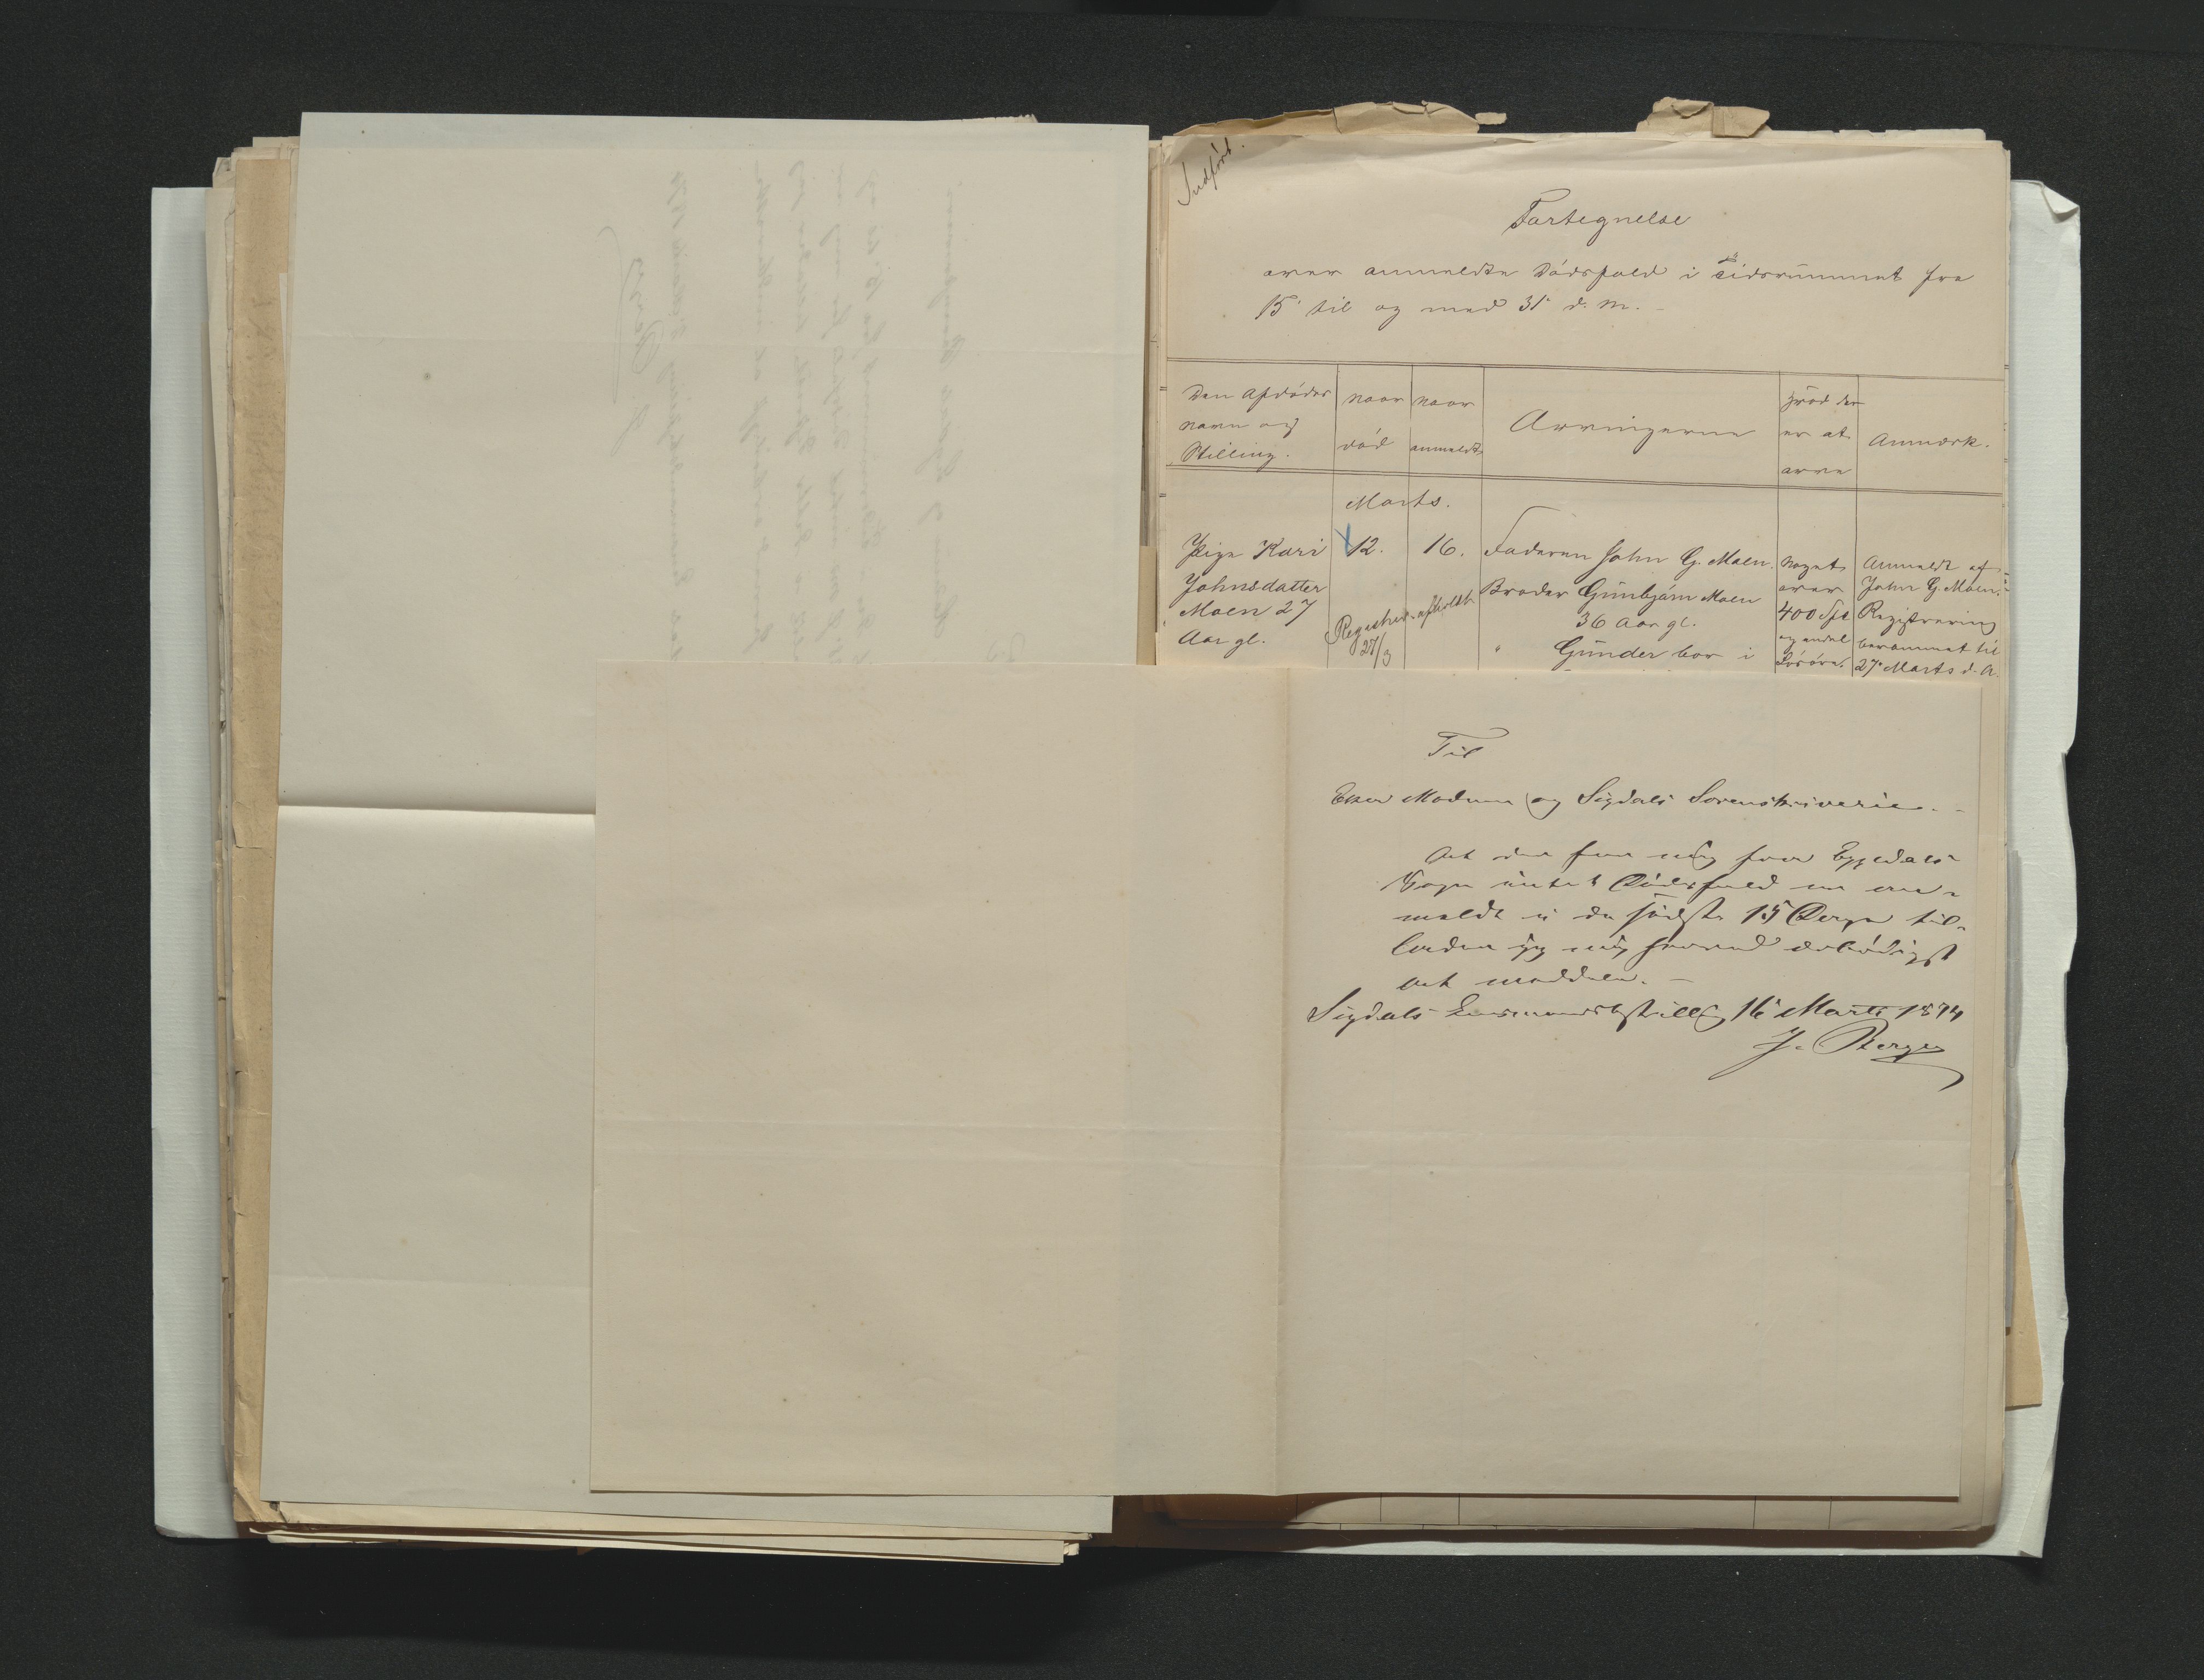 Indført.
Fortegnelse
over anmeldte Dødsfald i Tidsrummet fra
15' til og med 31' d. M. -
Den Afdødes
Navn og
Stilling.
Naar
død
Naar
anmeldt
Arvingerne
Hvad der
er at
arve
Anmærk.
Marts.
Pige Kari
Johnsdatter
Moen 27
Aar gl.
12.
16.
Registrer. afholdt
27/3
Faderen John G. Moen.
Broder Gunbjørn Moen
36 Aar gl.
" Gunder bor i
Noget
over
400 Spd
og andel
Løsøre.
Anmeldt af
John G. Moen.
Registrering
berammet til
27' Marts d. A.
Til
Eker Modum og Sigdals Sorenskriverie. -
At der for mig fra Eggedals
Sogn intet Dødsfald er an-
meldt i de sidste 15 Dage til-
lader jeg mig herved ærbødigst
at meddele. -
Sigdals Lensmandsbestilling 16' Marts 1874
J. Berge